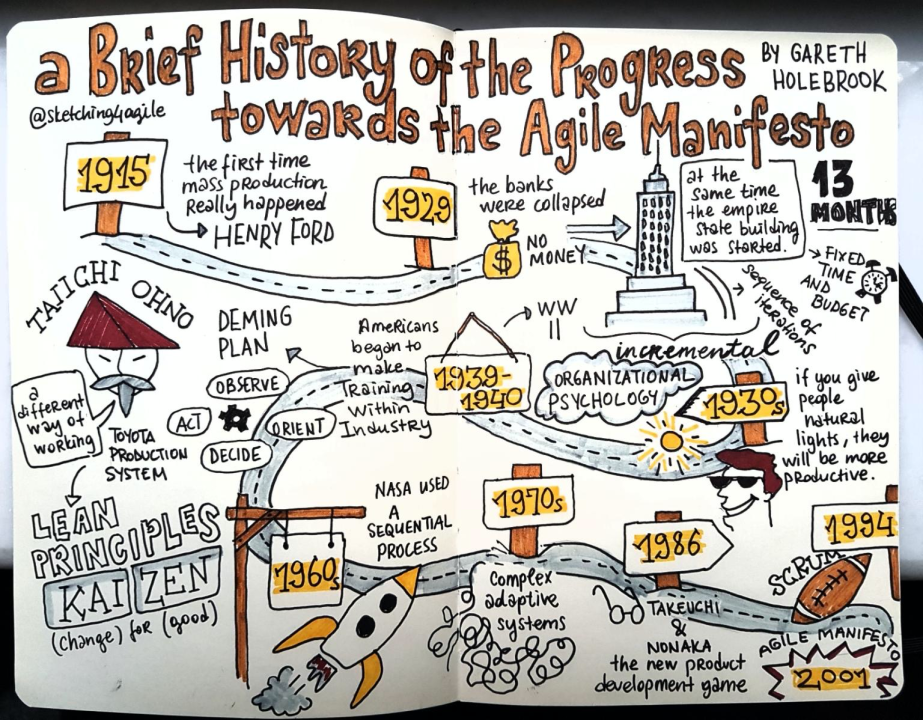 a Brief History of the Progress
towards the Agile Manifesto
BY GARETH
HOLEBROOK
@sketching4agile
1915
the first time
mass production
really happened
HENRY FORD
1929
the banks
were collapsed
$
NO
MONEY
at the
same time
the empire
state building
was started.
13
MONTHS
FIXED
TIME
AND
BUDGET
sequence of
iterations
incremental
1930s
if you give
people
natural
lights, they
will be more
productive.
ORGANIZATIONAL
PSYCHOLOGY
WW
II
1939-
1940
Americans
began to
make
Training
Within
Industry
DEMING
PLAN
OBSERVE
ORIENT
DECIDE
ACT
TAIICHI OHNO
a
different
way of
working
TOYOTA
PRODUCTION
SYSTEM
LEAN
PRINCIPLES
KAI ZEN
(change) for (good)
1960s
NASA USED
A
SEQUENTIAL
PROCESS
1970s
Complex
adaptive
systems
1986
TAKEUCHI
&
NONAKA
the new product
development game
1994
SCRUM
AGILE MANIFESTO
2001